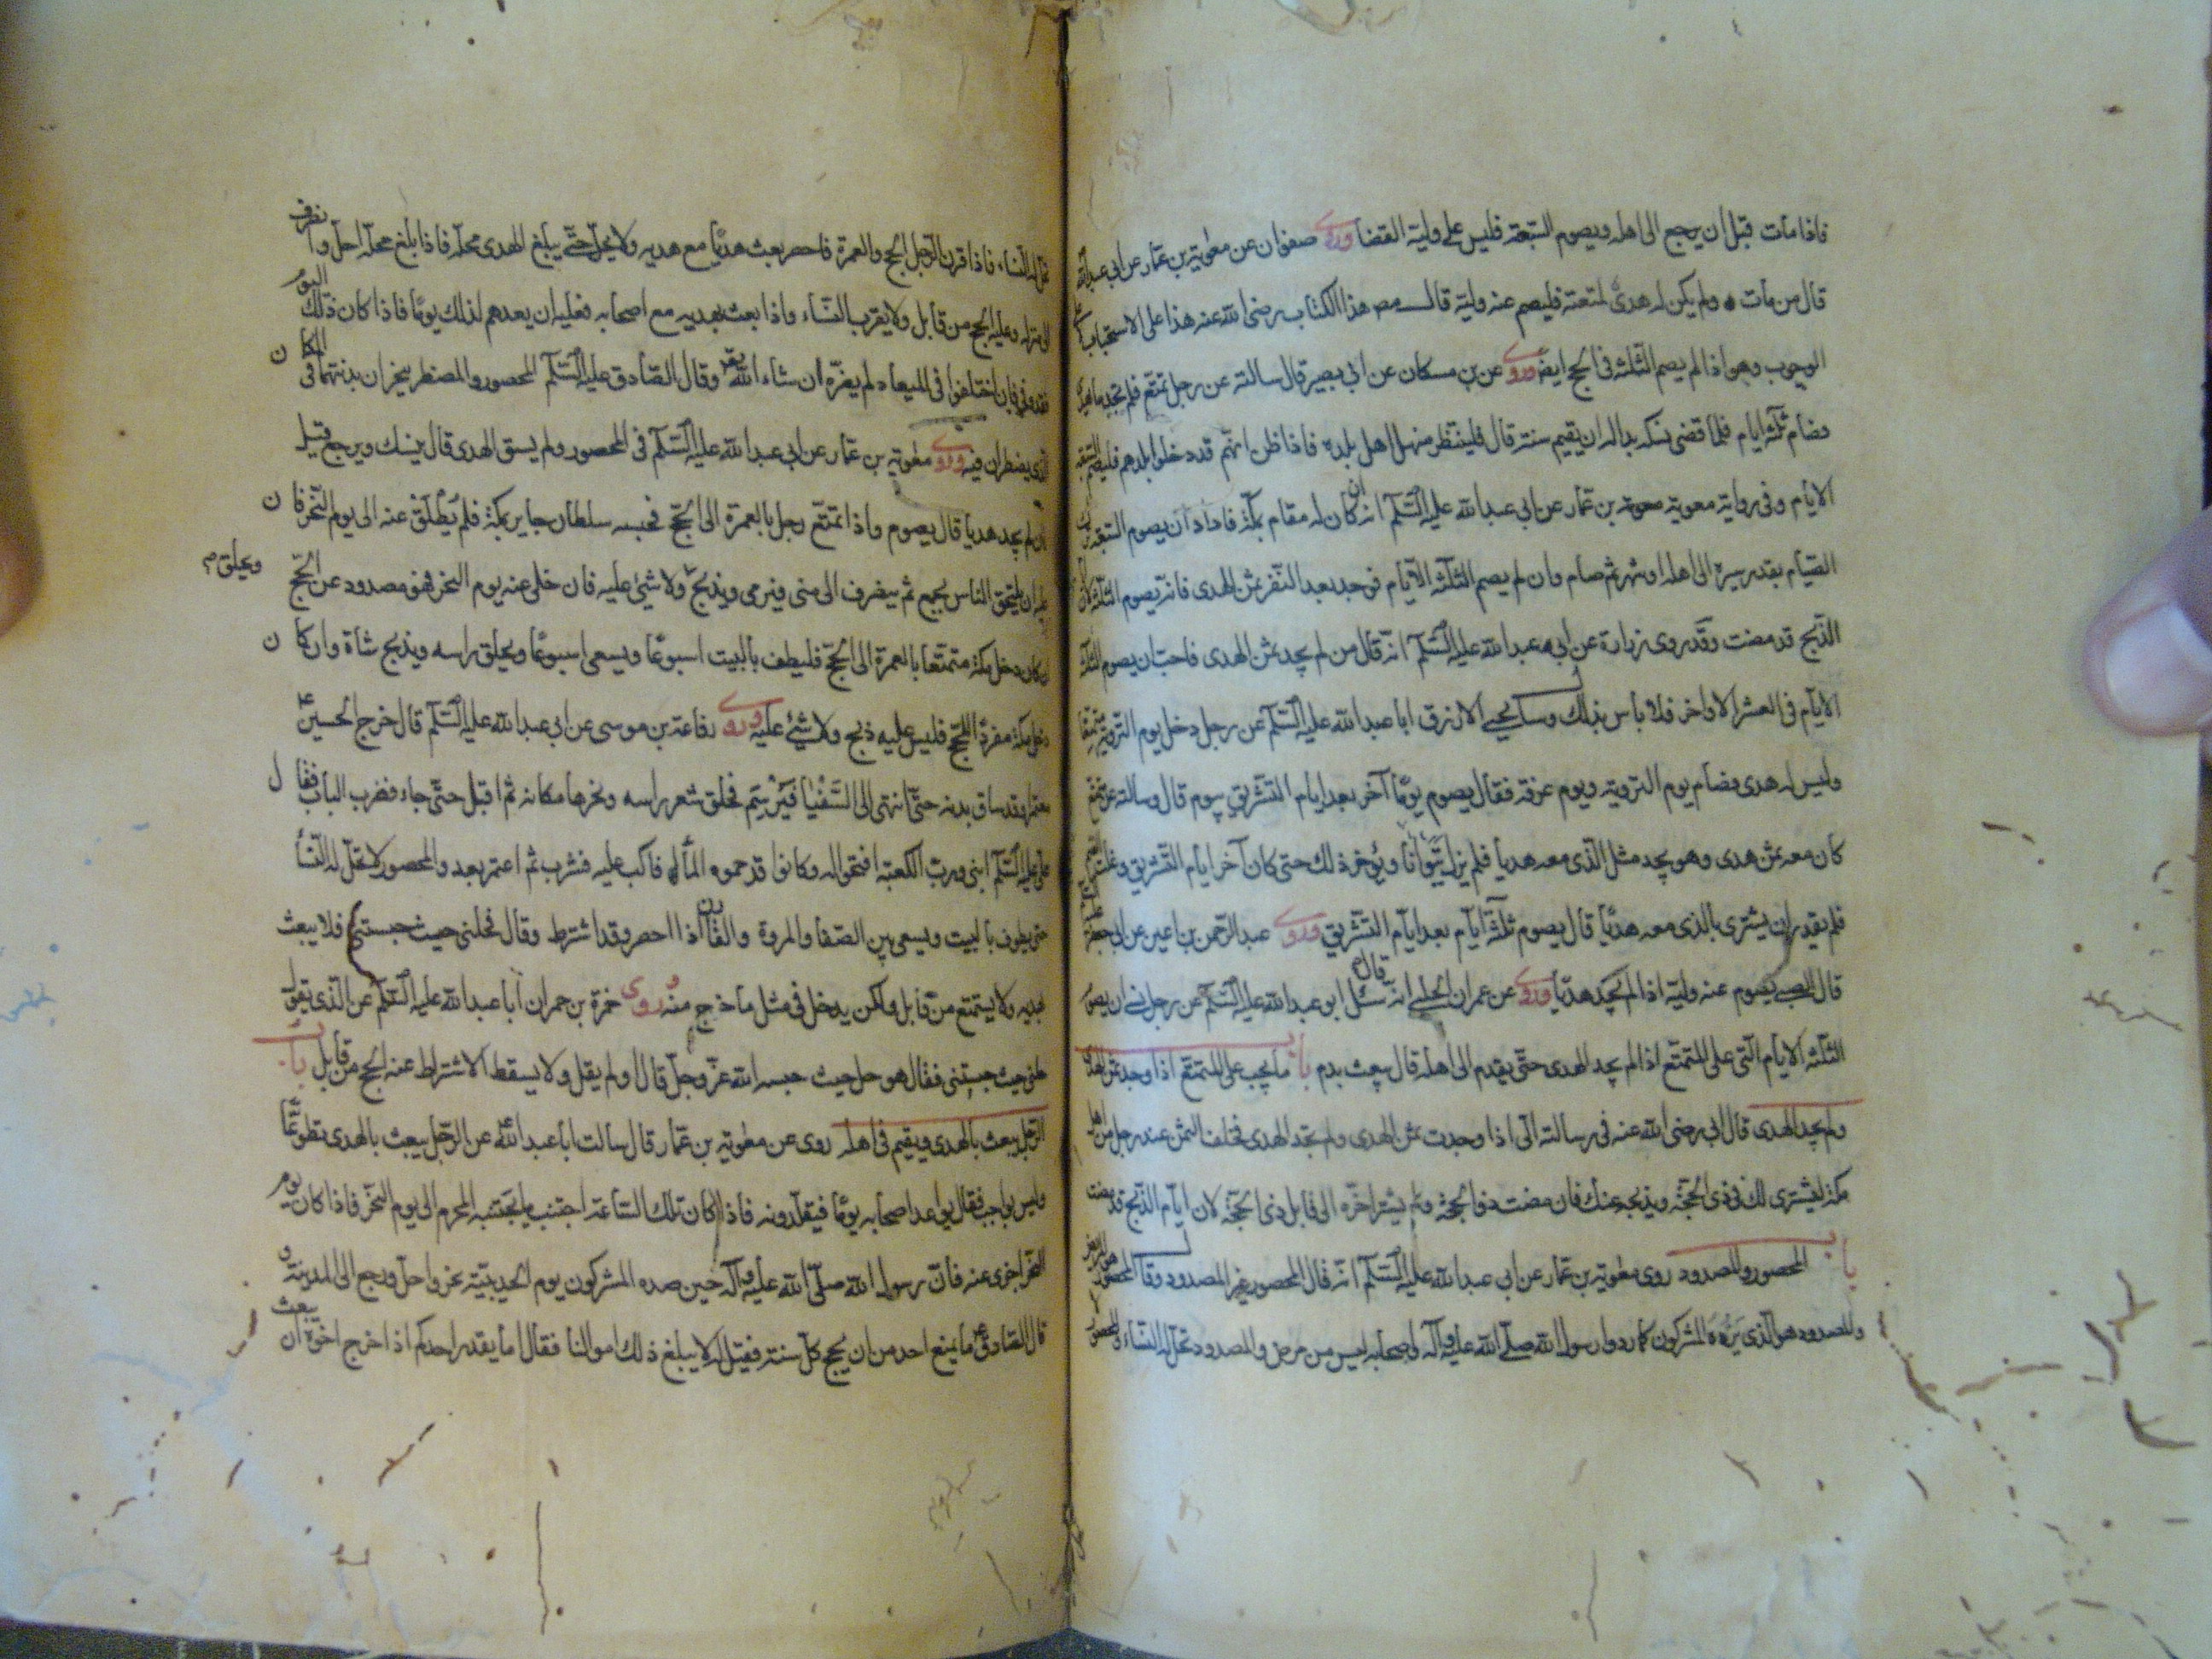 فاذا مات قبل ان يرجع الى اهله ويصوم السبعة فليس على وليه القضا وروى صفوان عن معوية بن عمار عن ابي عبدالله
قال من مات ولم يكن له هدى لمتعته فليصم عنه وليه قال مص هذا الكتاب رضى الله عنه هذا على الاستحباب لا على
الوجوب وهو اذا لم يصم الثلثة فى الحج ايضا وروى عن بن مسكان عن ابي بصير قال سالته عن رجل تمتع فلم يجد ما يهدى
فصام ثلثة ايام فلما قضى نسكه بدا له ان يقيم سنة قال فلينتظر منهل اهل بلده فاذا ظن انهم قد دخلوا بلدهم فليصم السبعة
الايام وفى رواية معوية معوية بن عمار عن ابي عبد الله عليه السلم انه ان كان له مقام بمكة فاراد ان يصوم السبعة ترك
الصيام بقدر سيره الى اهله او شهر ثم صام وان لم يصم الثلثة الايام فوجد بعد النفر ثمن الهدى فانه يصوم الثلثة لان
الذبح قد مضت وقد روى زرارة عن ابي عبد الله عليه السلم انه قال من لم يجد ثمن الهدى فاحب ان يصوم الثلثة
الايام فى العشر الاواخر فلا باس بذلك وسال يحيى الازرق ابا عبد الله عليه السلم عن رجل دخل يوم التروية متمتعا
وليس له هدى فصام يوم التروية ويوم عرفة فقال يصوم يوما آخر بعد ايام التشريق بيوم قال وسالته عن متمتع
كان معه ثمن هدى وهو يجد مثل الذى معه هديا فلم يزل يتوانا ويؤخر ذلك حتى كان آخر ايام التشريق وغلت الغنم
فلم يقدر ان يشترى بالذى معه هديا قال يصوم ثلثة ايام بعد ايام التشريق وروى عبد الرحمن بن اعين عن ابي جعفر
قال الصبى يصوم عنه وليه اذا لم يجد هديا وروى عن عمران الحلبى انه قال سئل ابو عبد الله عليه السلم عن رجل نسى ان يصوم
الثلثة الايام التى على المتمتع اذا لم يجد الهدى حتى يقدم الى اهله قال يبعث بدم باب ما يجب على المتمتع اذا وجد ثمن الهدى
ولم يجد الهدى قال ابي رضى الله عنه فى رسالته الى اذا وجدت ثمن الهدى ولم تجد الهدى فخلف الثمن عند رجل من اهل
مكة ليشترى لك فى ذى الحجة ويذبحه عنك فان مضت ذو الحجة ولم يشتر اخره الى قابل ذى الحجة لان ايام الذبح قد مضت
باب المحصور والمصدود روى معوية بن عمار عن ابي عبد الله عليه السلم انه قال المحصور غير المصدود وقال المحصور هو المريض
والمصدود هو الذى يرده المشركون كما ردوا رسول الله صلى الله عليه وآله واصحابه ليس من مرض والمصدود تحل له النساء والمحصور
لا تحل له النساء فاذا قرن الرجل الحج والعمرة فاحصر بعث هديا مع هديه ولا يحل حتى يبلغ الهدى محله فاذا بلغ محله احل وانصرف
الى منزله وعليه الحج من قابل ولا يقرب النساء واذا بعث بهديه مع اصحابه فعليه ان يعدهم لذلك يوما فاذا كان ذلك اليوم
فقد وفى فان اختلفوا فى الميعاد لم يضره ان شاء الله تعالى وقال الصادق عليه السلم المحصور والمضطر ينحران بدنتهما فى المكان
الذى يضطران فيه وروى معوية بن عمار عن ابي عبد الله عليه السلم فى المحصور ولم يسق الهدى قال ينسك ويرجع قيل
فان لم يجد هديا قال يصوم واذا تمتع رجل بالعمرة الى الحج فحبسه سلطان جاير بمكة فلم يطلق عنه الى يوم النحر فان
عليه ان يلحق الناس بجمع ثم ينصرف الى منى فيرمى ويذبح ويحلق ولا شئ عليه فان خلى عنه يوم النحر فهو مصدود عن الحج
ان كان دخل مكة متمتعا بالعمرة الى الحج فليطف بالبيت اسبوعا ويسعى اسبوعا ويحلق راسه ويذبح شاة وان كان
دخل مكة مفردا للحج فليس عليه ذبح ولا شئ عليه وروى رفاعة بن موسى عن ابي عبد الله عليه السلم قال خرج الحسين
معتمرا وقد ساق بدنة حتى انتهى الى السقيا فبرسم فحلق شعر راسه ونحرها مكانه ثم اقبل حتى جاء فضرب الباب فقال
على عليه السلم ابنى ورب الكعبة افتحوا له وكانوا قد حموه الماء فاكب عليه فشرب ثم اعتمر بعد والمحصور لا تحل له النسا
حتى يطوف بالبيت ويسعى بين الصفا والمروة والقارن اذا احصر وقد اشترط وقال فحلنى حيث حبستنى فلا يبعث
بهديه ولا يستمتع من قابل ولكن يدخل فى مثل ما خرج منه وروى حمزة بن حمران ابا عبد الله عليه السلم عن الذى يقول
حلنى حيث حبستنى فقال هو حل حيث حبسه الله عز وجل قال او لم يقل ولا يسقط الاشتراط عنه الحج من قابل باب
الرجل يبعث بالهدى ويقيم فى اهله روى عن معوية بن عمار قال سالت ابا عبد الله عن الرجل يبعث بالهدى تطوعا
وليس بواجب فقال يواعد اصحابه يوما فيقلدونه فاذا كان تلك الساعة اجتنب ما يجتنبه المحرم الى يوم النحر فاذا كان يوم
النحر اجزى عنه فان رسول الله صلى الله عليه وآله حين صده المشركون يوم الحديبية نحر واحل ورجع الى المدينة و
قال الصادق ما يمنع احدكم من ان يحج كل سنة فقيل له لا يبلغ ذلك اموالنا فقال اما يقدر احدكم اذا خرج اخوه ان يبعث